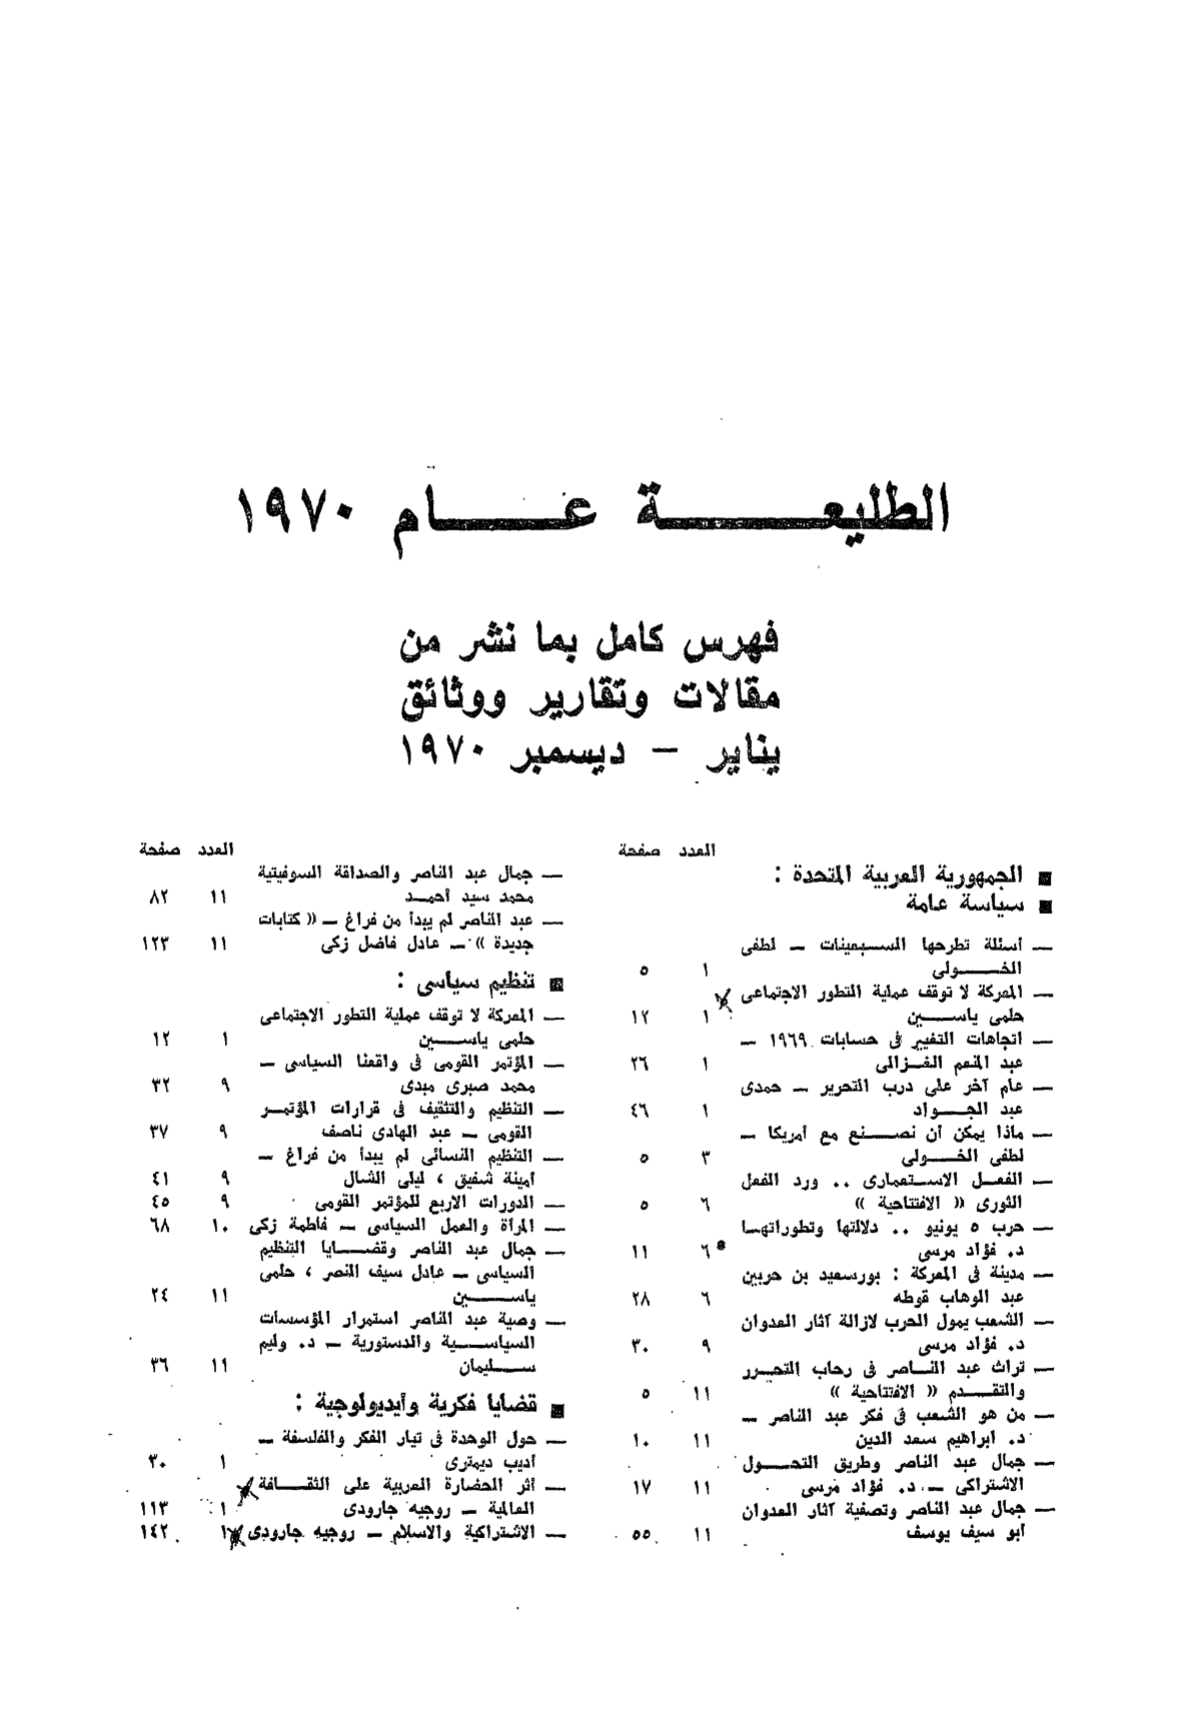 الطليعة عام ١٩٧٠
فهرس كامل بما نشر من
مقالات وتقارير ووثائق
يناير – ديسمبر ١٩٧٠
العدد صفحة
■ الجمهورية العربية المتحدة :
■ سياسة عامة
— أسئلة تطرحها السبعينات – لطفى
الخولى ١ ٥
— المعركة لا توقف عملية التطور الاجتماعى
حلمى ياسين ١ ١٢
— اتجاهات التغيير فى حسابات ١٩٦٩ –
عبد المنعم الغزالى ١ ٢٦
— عام آخر على درب التحرير – حمدى
عبد الجواد ١ ٤٦
— ماذا يمكن أن نصنع مع أمريكا –
لطفى الخولى ٣ ٥
— الفعل الاستعمارى .. ورد الفعل
الثورى « الافتتاحية » ٦ ٥
— حرب ٥ يونيو .. دلالتها وتطوراتها
د. فؤاد مرسى ٦ ١١
— مدينة فى المعركة : بورسعيد بن حربين
عبد الوهاب قوطه ٦ ٢٨
— الشعب يمول الحرب لازالة آثار العدوان
د. فؤاد مرسى ٩ ٣٠
— تراث عبد الناصر فى رحاب التحرر
والتقدم « الافتتاحية » ١١ ٥
— من هو الشعب فى فكر عبد الناصر –
د. ابراهيم سعد الدين ١١ ١٠
— جمال عبد الناصر وطريق التحول
الاشتراكى – د. فؤاد مرسى ١١ ١٧
— جمال عبد الناصر وتصفية آثار العدوان
أبو سيف يوسف ١١ ٥٥
العدد صفحة
— جمال عبد الناصر والصداقة السوفيتية
محمد سيد أحمد ١١ ٨٢
— عبد الناصر لم يبدأ من فراغ – « كتابات
جديدة » – عادل فاضل زكى ١١ ١٢٣
■ تنظيم سياسى :
— المعركة لا توقف عملية التطور الاجتماعى
حلمى ياسين ١ ١٢
— المؤتمر القومى فى واقعنا السياسى –
محمد صبرى مبدى ٩ ٣٢
— التنظيم والتثقيف فى قرارات المؤتمر
القومى – عبد الهادى ناصف ٩ ٣٧
— التنظيم النسائى لم يبدأ من فراغ –
أمينة شفيق ، ليلى الشال ٩ ٤١
— الدورات الاربع للمؤتمر القومى ٩ ٤٥
— المرأة والعمل السياسى – فاطمة زكى ١٠ ٦٨
— جمال عبد الناصر وقضايا التنظيم
السياسى – عادل سيف النصر ، حلمى
ياسين ١١ ٢٤
— وصية عبد الناصر استمرار المؤسسات
السياسية والدستورية – د. وليم
سليمان ١١ ٣٦
■ قضايا فكرية وأيديولوجية :
— حول الوحدة فى تيار الفكر والفلسفة –
أديب ديمترى ١ ٣٠
— أثر الحضارة العربية على الثقافة
العالمية – روجيه جارودى ١ ١١٣
— الاشتراكية والاسلام – روجيه جارودى ١ ١٤٢